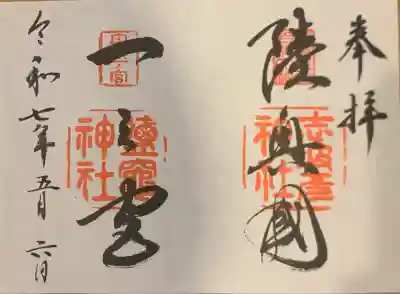 奉拝
陸奥國
志波彦
神社
一之宮
鹽竈
神社
令和七年五月六日